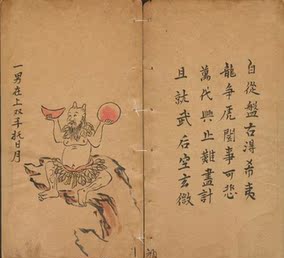 自從盤古淂希夷
龍爭虎闘事可悲
萬代興亡難盡計
且就武后定玄微
一男在上双手托日月